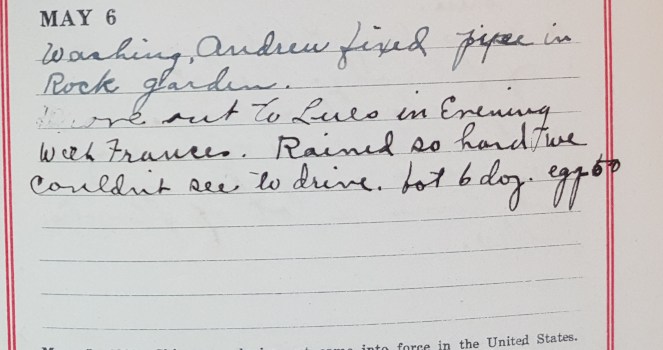 MAY 6
Washing, Andrew fixed pipe in
Rock garden.
out to Lulo in Evening
With Frances. Rained so hard we
Couldnt see to drive. Got 6 doz. egg 60
into force in the United States.